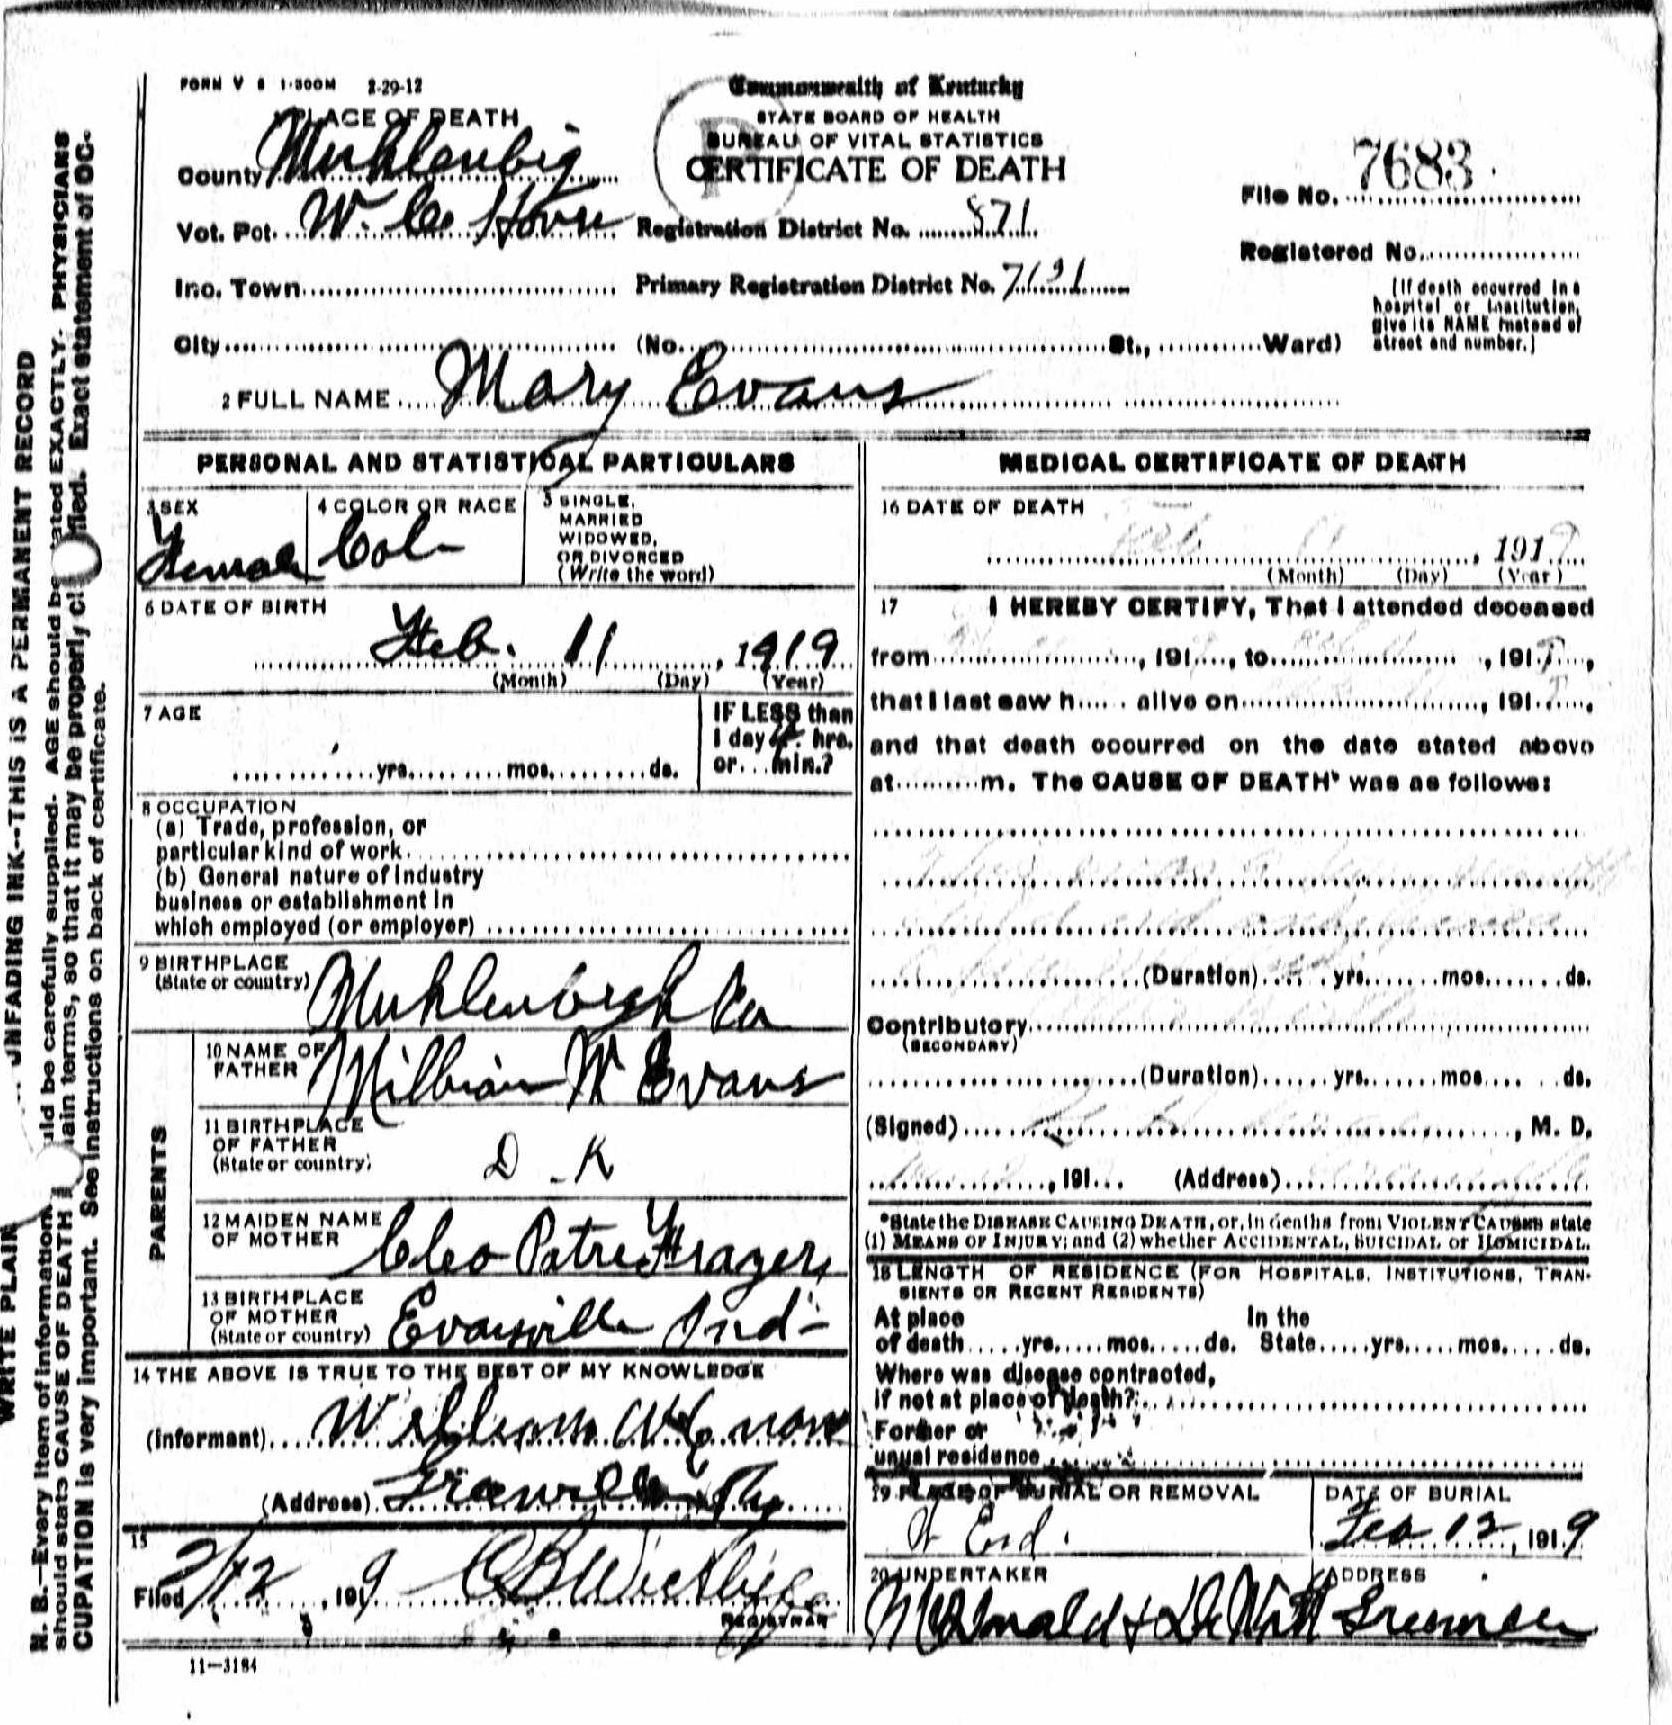 FORM V S 1-300M 2-29-12
Commonwealth of Kentucky
STATE BOARD OF HEALTH
BUREAU OF VITAL STATISTICS
CERTIFICATE OF DEATH
PLACE OF DEATH
County Muhlenbig
Vot. Pct. W. Co
Inc. Town
City (No. St., Ward)
Registration District No. 871
Primary Registration District No. 7191
File No. 7683
Registered No.
(If death occurred in a
hospital or institution,
give its NAME instead of
street and number.)
2 FULL NAME Mary Evans
PERSONAL AND STATISTICAL PARTICULARS
3 SEX
Female
4 COLOR OR RACE
Col
5 SINGLE,
MARRIED
WIDOWED,
OR DIVORCED
(Write the word)
6 DATE OF BIRTH
Feb. 11, 1919
(Month) (Day) (Year)
7 AGE
yrs. mos. ds.
IF LESS than
1 day hrs.
or min.?
8 OCCUPATION
(a) Trade, profession, or
particular kind of work
(b) General nature of Industry
business or establishment in
which employed (or employer)
9 BIRTHPLACE
(State or country) Muhlenbergh
PARENTS
10 NAME OF
FATHER W Evans
11 BIRTHPLACE
OF FATHER
(State or country) D K
12 MAIDEN NAME
OF MOTHER Cleo Patre Frazer
13 BIRTHPLACE
OF MOTHER
(State or country) Evansville Ind-
14 THE ABOVE IS TRUE TO THE BEST OF MY KNOWLEDGE
(Informant) William
(Address) Ky
15
Filed 2/12, 1919
REGISTRAR
11-3184
MEDICAL CERTIFICATE OF DEATH
16 DATE OF DEATH
Feb 191
(Month) (Day) (Year)
17 I HEREBY CERTIFY, That I attended deceased
from , 191 , to , 191 ,
that I last saw h alive on , 191 ,
and that death occurred on the date stated above
at m. The CAUSE OF DEATH* was as follows:
(Duration) yrs. mos. ds.
Contributory
(SECONDARY)
(Duration) yrs. mos. ds.
(Signed) , M. D.
, 191 (Address)
*State the DISEASE CAUSING DEATH, or, in deaths from VIOLENT CAUSES state
(1) MEANS OF INJURY; and (2) whether ACCIDENTAL, SUICIDAL or HOMICIDAL.
18 LENGTH OF RESIDENCE (FOR HOSPITALS, INSTITUTIONS, TRAN-
SIENTS OR RECENT RESIDENTS)
At place In the
of death yrs. mos. ds. State yrs. mos. ds.
Where was disease contracted,
if not at place of death?
Former or
usual residence
19 PLACE OF BURIAL OR REMOVAL
W End.
DATE OF BURIAL
Feb 12, 1919
20 UNDERTAKER
McDonald & DeWitt
ADDRESS
WRITE PLAIN UNFADING INK--THIS IS A PERMANENT RECORD
N. B.--Every item of information uld be carefully supplied. AGE should be ated EXACTLY. PHYSICIANS
should state CAUSE OF DEATH i lain terms, so that it may be properly cl ified. Exact statement of OC-
CUPATION is very important. See instructions on back of certificate.